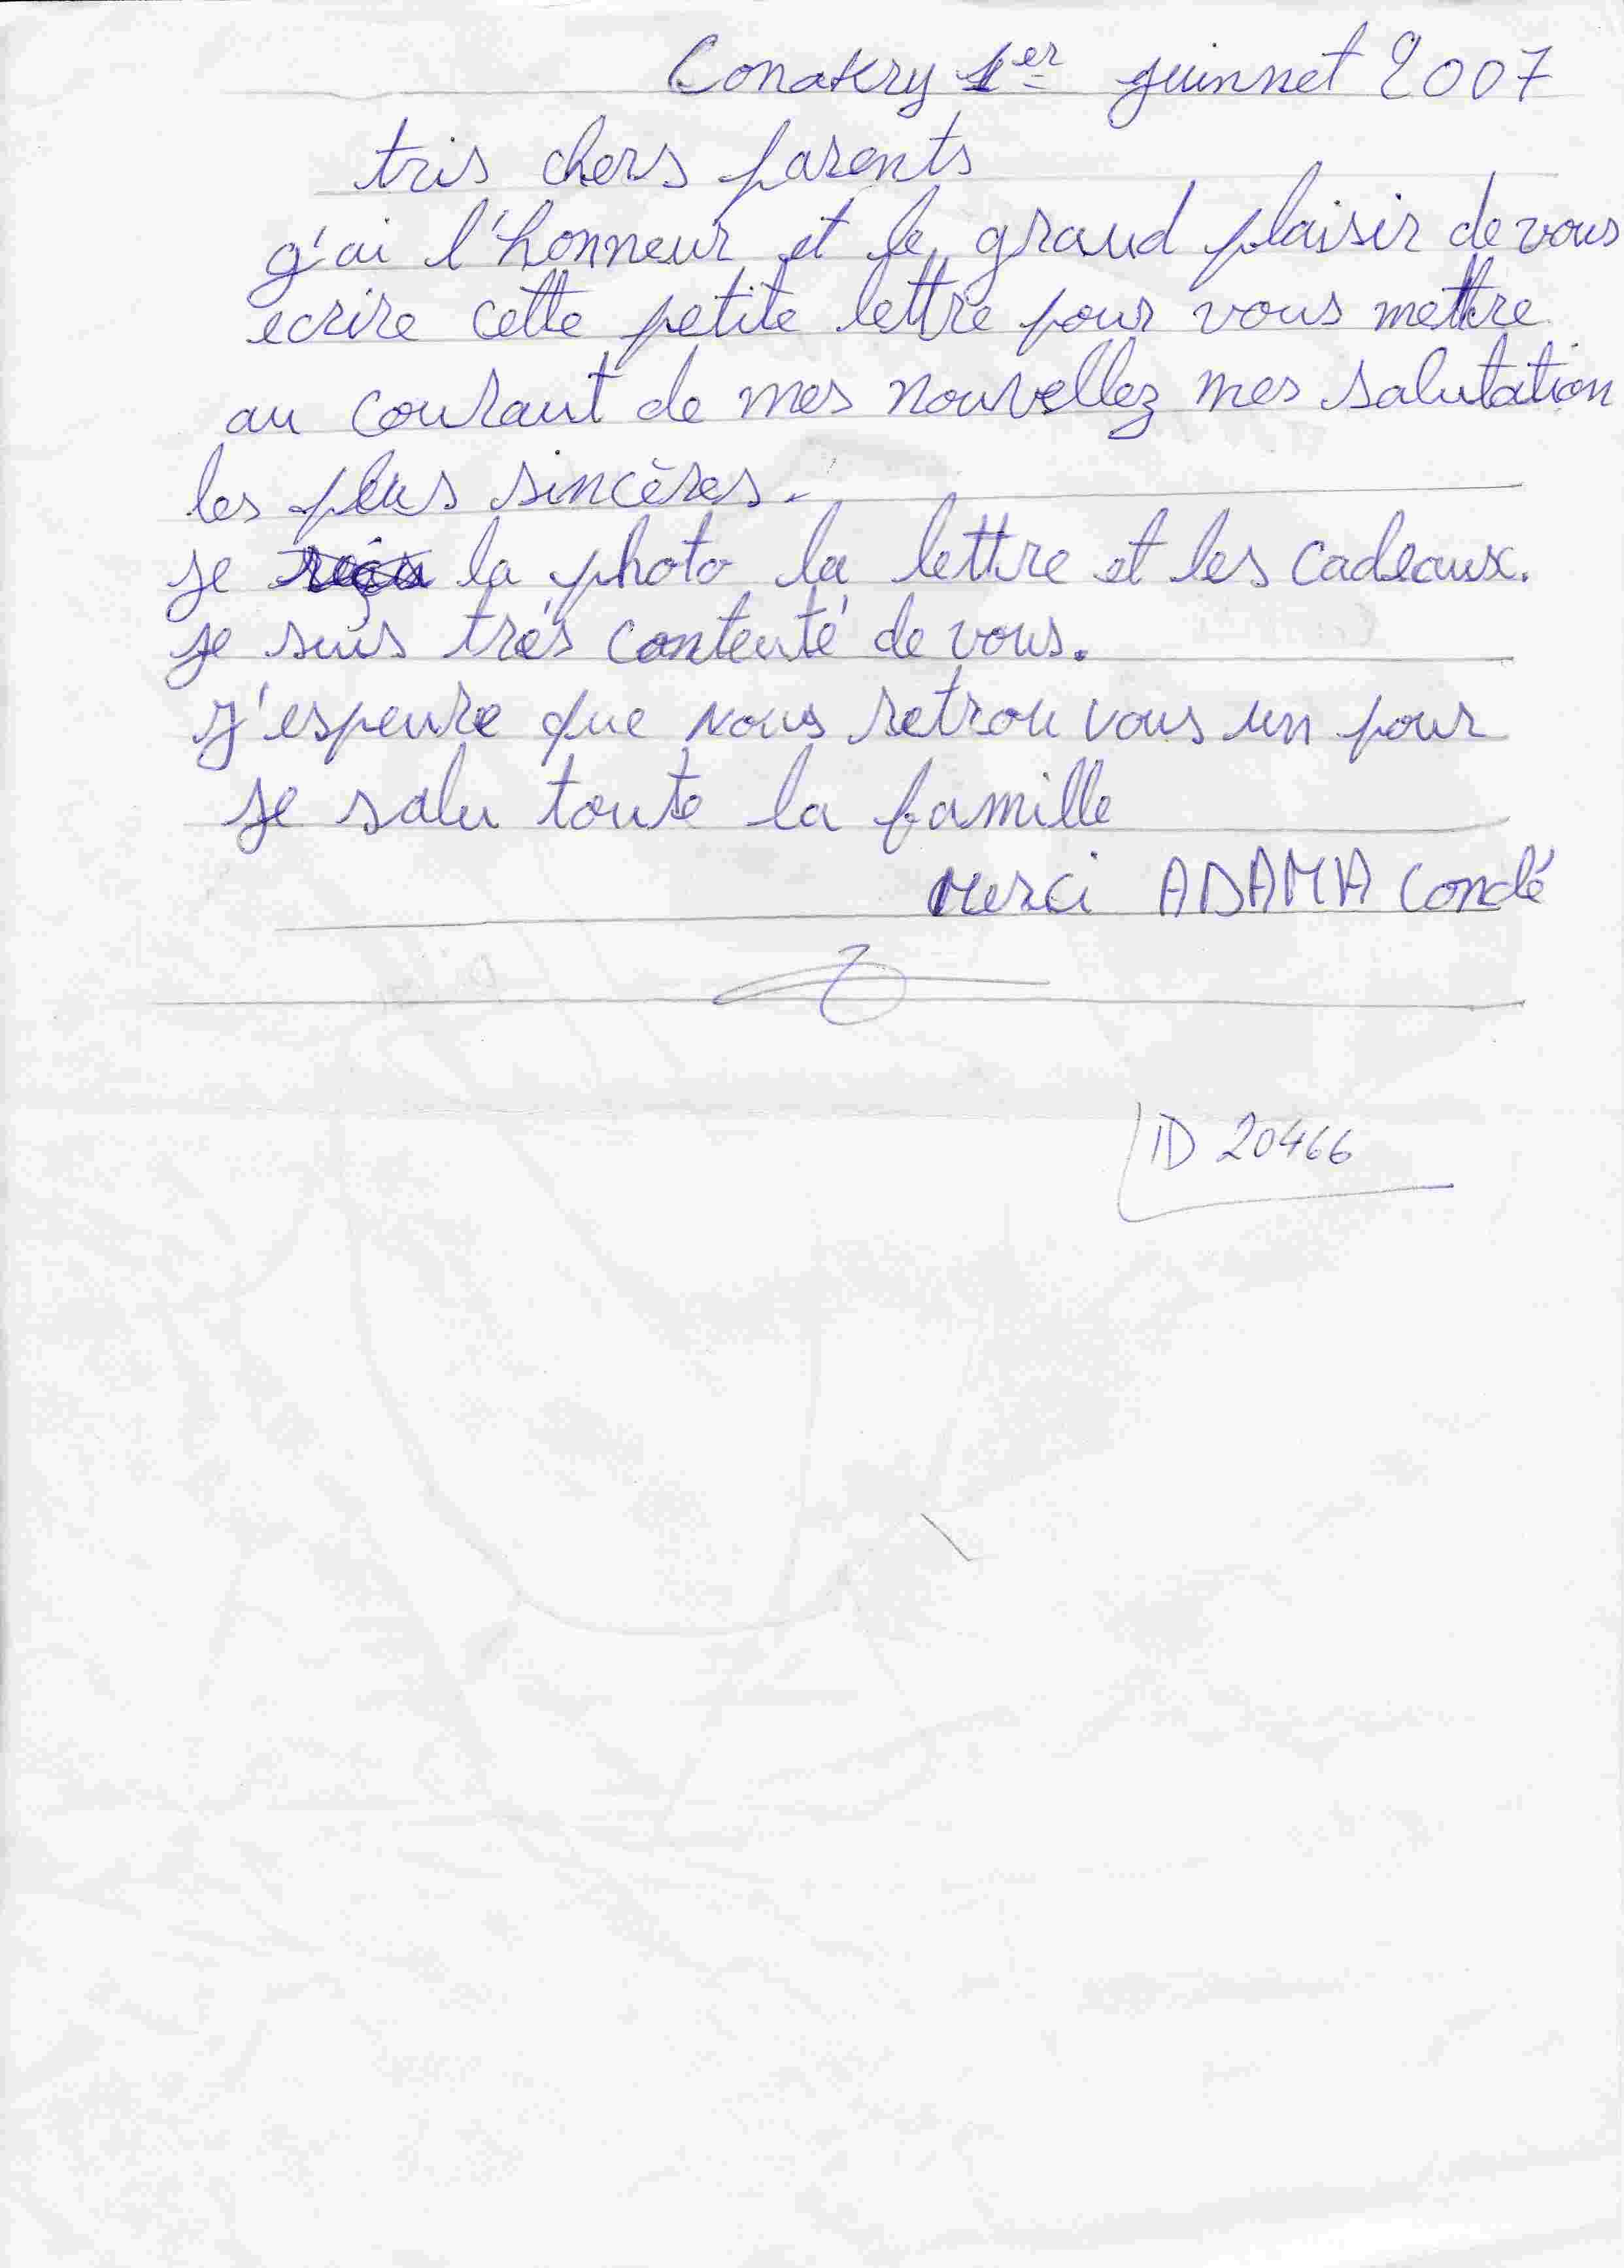 Conakry 1er guinnet 2007
tris chers parents
g'ai l'honneur et le grand plaisir de vous
ecrire cette petite lettre pour vous mettre
au courant de mes nouvellez mes salutation
les plus sincères.
je reçu la photo la lettre et les cadeaux.
je suis très contenté de vous.
J'espeure que nous retrou vous un pour
je salu toute la famille
Merci ADAMA Condé
ID 20466